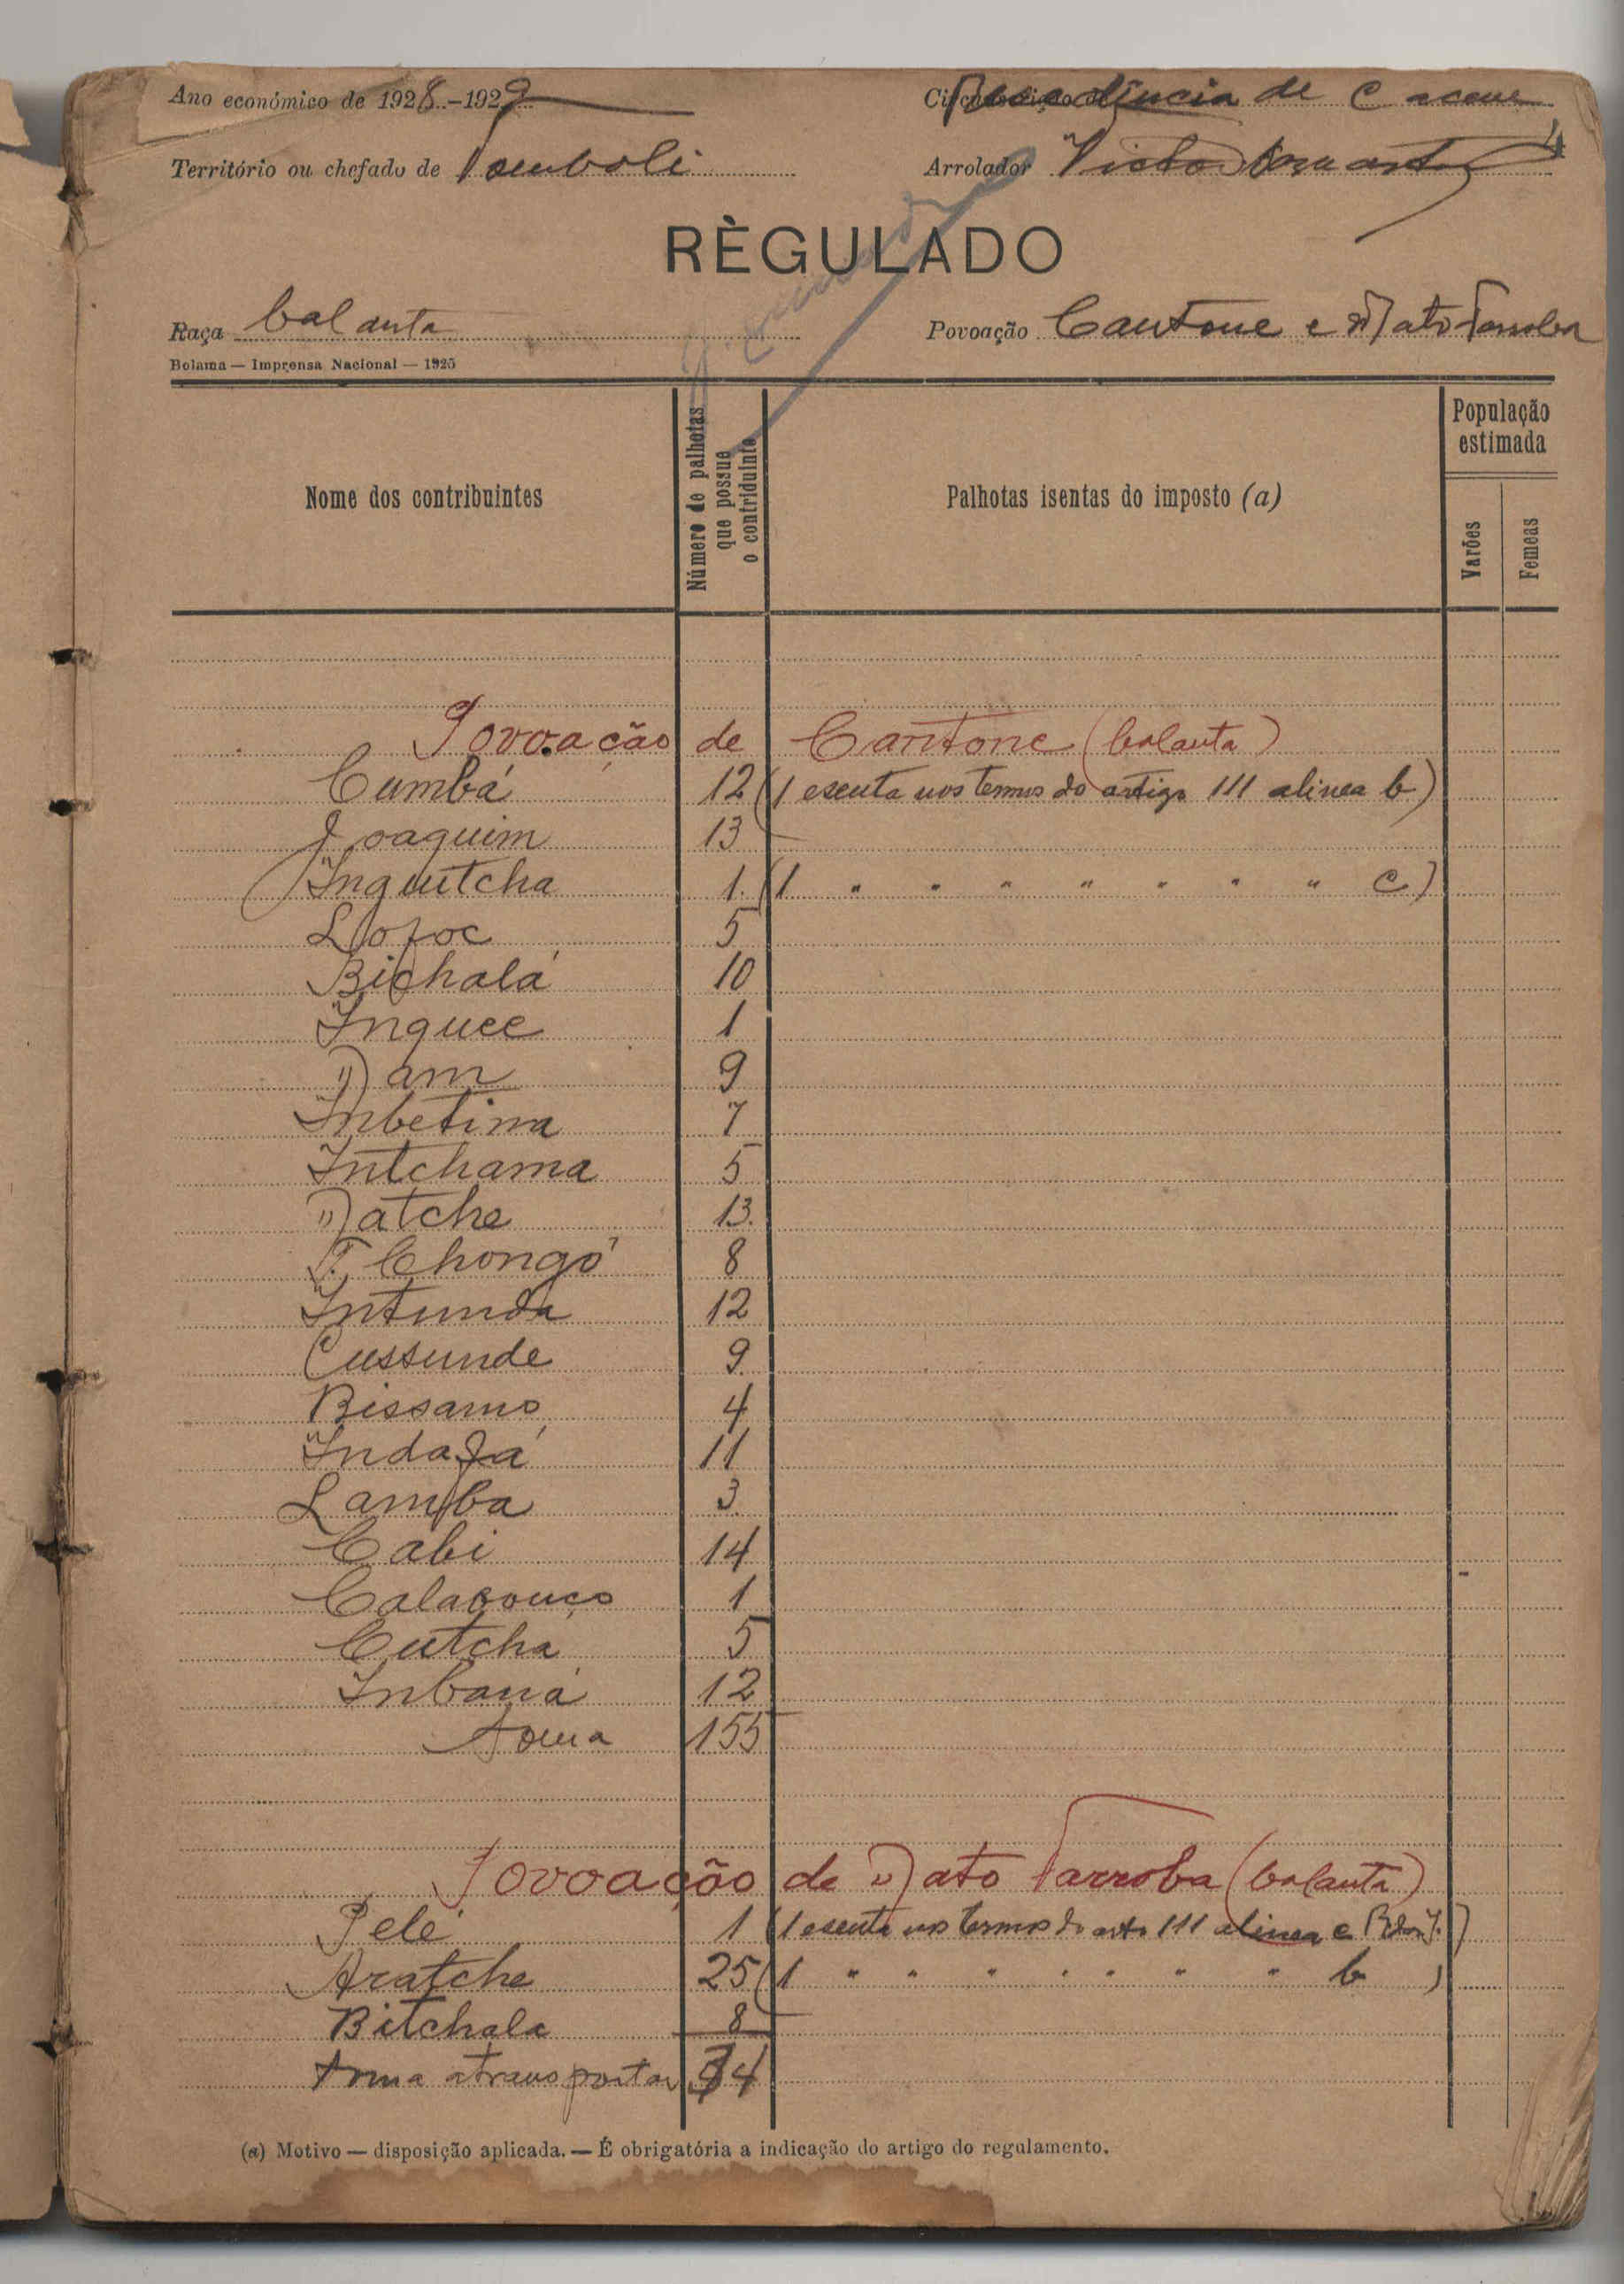 Ano económico de 1928-1929
Circunscrição Residência de Cacene
4
Território ou chefado de Tomboli
Arrolador Victor
RÈGULADO
Raça balanta
Povoação Cantone e Mato Farroba
Bolama — Imprensa Nacional — 1925
Nome dos contribuintes
Número de palhotas que possue o contriduinte
Palhotas isentas do imposto (a)
População estimada
Varões
Femeas
Povoação de Cantone (balanta)
Cumbá 12 (1 esenta nos termos do artigo 111 alinea b)
Joaquim 13
Inguitcha 1 (1 " " " " " " " c)
Lofoc 5
Bichalá 10
Inquee 1
Dam 9
Inbetima 7
Intchama 5
Natche 13
T. Chongó 8
Intunda 12
Cussunde 9
Bissamo 4
Indafá 11
Lamba 3
Cabi 14
Calabouço 1
Cutchá 5
Inbaná 12
Soma 155
Povoação de Mato Farroba (balanta)
Pelé 1 (1 esenta nos termos do arto 111 alinea c
Aratche 25 (1 " " " " " " " b )
Bitchala 8
Soma a transportar 34
(a) Motivo — disposição aplicada. — É obrigatória a indicação do artigo do regulamento.